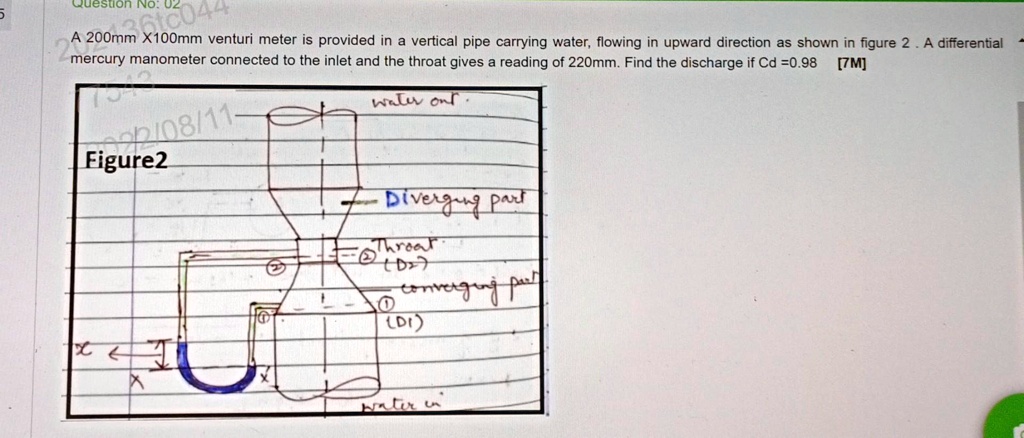 5
Question No: 02
202136tc044
A 200mm X100mm venturi meter is provided in a vertical pipe carrying water, flowing in upward direction as shown in figure 2 . A differential
mercury manometer connected to the inlet and the throat gives a reading of 220mm. Find the discharge if Cd =0.98 [7M]
water out.
Figure2
Diverging part
② Throat
(D2)
②
converging part
①
①
(D1)
x
X
X
water in